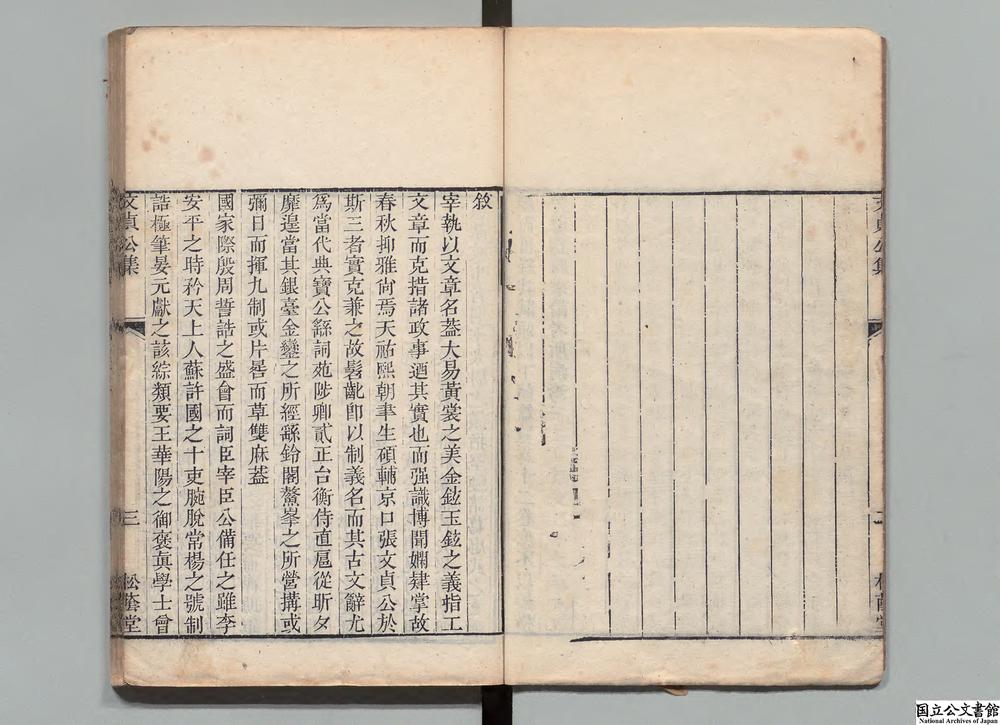 敘
宰執以文章名葢大易黃裳之美金鉉玉鉉之義指工
文章而克措諸政事迺其實也而强識博聞嫻肄掌故
春秋抑雅尙焉天祐熙朝聿生碩輔京口張文貞公於
斯三者實克兼之故髫齓卽以制義名而其古文辭尤
爲當代典寶公繇詞苑陟卿貳正台衡侍直扈從昕夕
靡遑當其銀臺金鑾之所經繇鈴閣鰲峯之所營搆或
彌日而揮九制或片晷而草雙麻葢
國家際殷周誓誥之盛會而詞臣宰臣公備任之雖李
安平之時矜天上人蘇許國之十吏腕脫常楊之號制
誥極筆晏元獻之該綜類要王華陽之御褒眞學士曾
文貞公集 三 松蔭堂
国立公文書館
National Archives of Japan